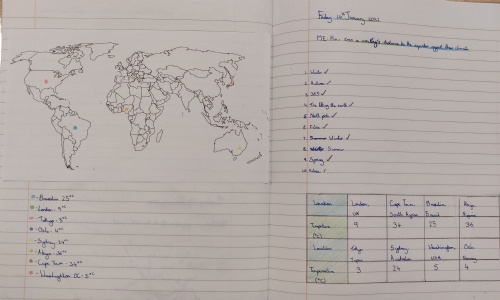 - Brasilia 25°C
- London 9°C
- Tokyo 3°C
- Oslo 4°C
- Sydney 24°C
- Abuja 36°C
- Cape Town - 34°C
- Washington DC - 5°C
Friday 14th January 2022
does a distance to the equator affect climate
1. Winter ✓
2. ✓
3. 365 ✓
4. The tilting the earth ✓
5. North pole ✓
6. False ✓
7. Summer Winter ✓
8. Summer
9. Spring ✓
10. False ✓
Location London UK Cape Town South Africa Brasilia Brazil Abuja Nigeria
Temperature (°C) 9 34 25 36
Location Tokyo Japan Sydney Australia Washington USA Oslo Norway
Temperature (°C) 3 24 5 4